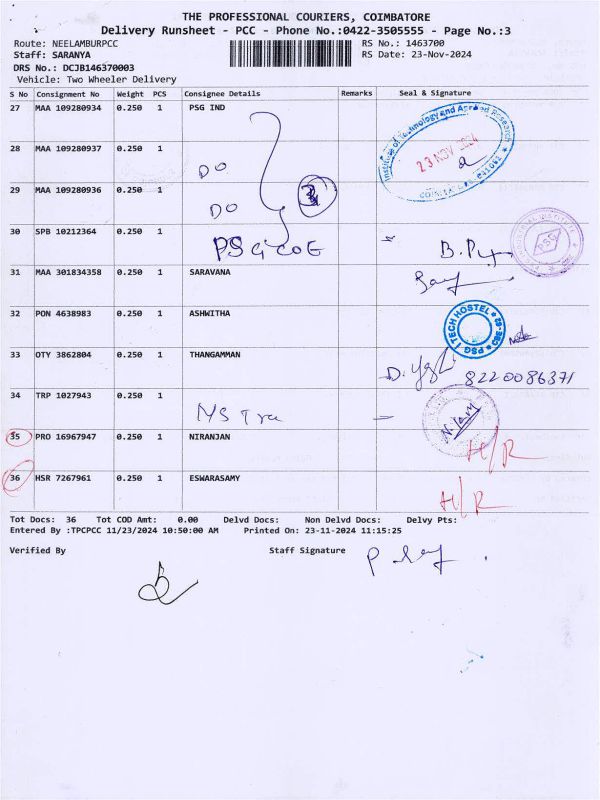 THE PROFESSIONAL COURIERS, COIMBATORE
Delivery Runsheet - PCC - Phone No.:0422-3505555 - Page No.:3
Route: NEELAMBURPCC RS No.: 1463700
Staff: SARANYA RS Date: 23-Nov-2024
DRS No.: DCJB146370003
Vehicle: Two Wheeler Delivery
S No Consignment No Weight PCS Consignee Details Remarks Seal & Signature
27 MAA 109280934 0.250 1 PSG IND
Institute of Technology and Applied Research
23 NOV 2024
28 MAA 109280937 0.250 1 DO
29 MAA 109280936 0.250 1 DO
30 SPB 10212364 0.250 1 PSG COE
PSG
31 MAA 301834358 0.250 1 SARAVANA
32 PON 4638983 0.250 1 ASHWITHA
PSG I TECH HOSTEL
33 OTY 3862804 0.250 1 THANGAMMAN 8220086371
34 TRP 1027943 0.250 1
35 PRO 16967947 0.250 1 NIRANJAN H/R
36 HSR 7267961 0.250 1 ESWARASAMY H/R
Tot Docs: 36 Tot COD Amt: 0.00 Delvd Docs: Non Delvd Docs: Delvy Pts:
Entered By :TPCPCC 11/23/2024 10:50:00 AM Printed On: 23-11-2024 11:15:25
Verified By Staff Signature